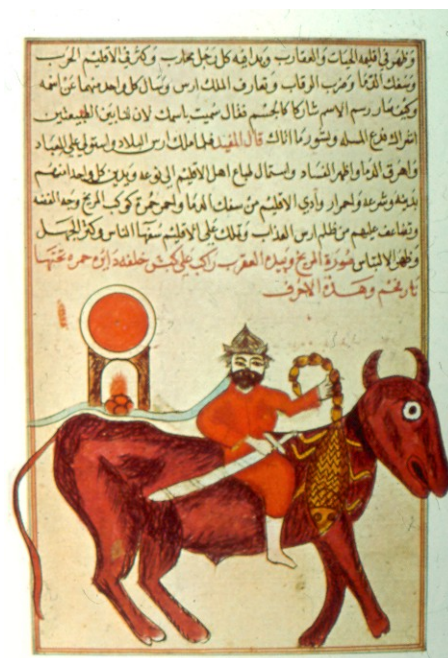 وظهر في اقليمه الحيات والعقارب وبداقه كل رجل محارب وكثر في الاقليم الحرب
وسفك الدما وضرب الرقاب وتعارف الملك ارس وسال كل واحد منهما عن اسمه
وكيف صار رسم الاسم شاركا كالجسم فقال سميت باسمك لان لنا بين الطبيعتين
اشتراك فرع المسله ويشور ما اتاك قال المفيد فلما ملك ارس البلاد واستولى على العباد
واهرق الدما واظهر الفساد واستمال طباع اهل الاقليم الى نوعه وتدين كل واحد منهم
بدينه وشرعه واحمرار وادي الاقليم من سفك الدما واحمر حمرة كوكب المريخ وجه الفضه
وتضاعف عليهم من ظلم ارس العذاب وملك على الاقليم سفها الناس وكثر الجهل
وظهر الالتباس صورة المريخ وبيده العقرب راكب على كبش خلفه دايره حمره تحتها
نار فحم وهذه الاحرف